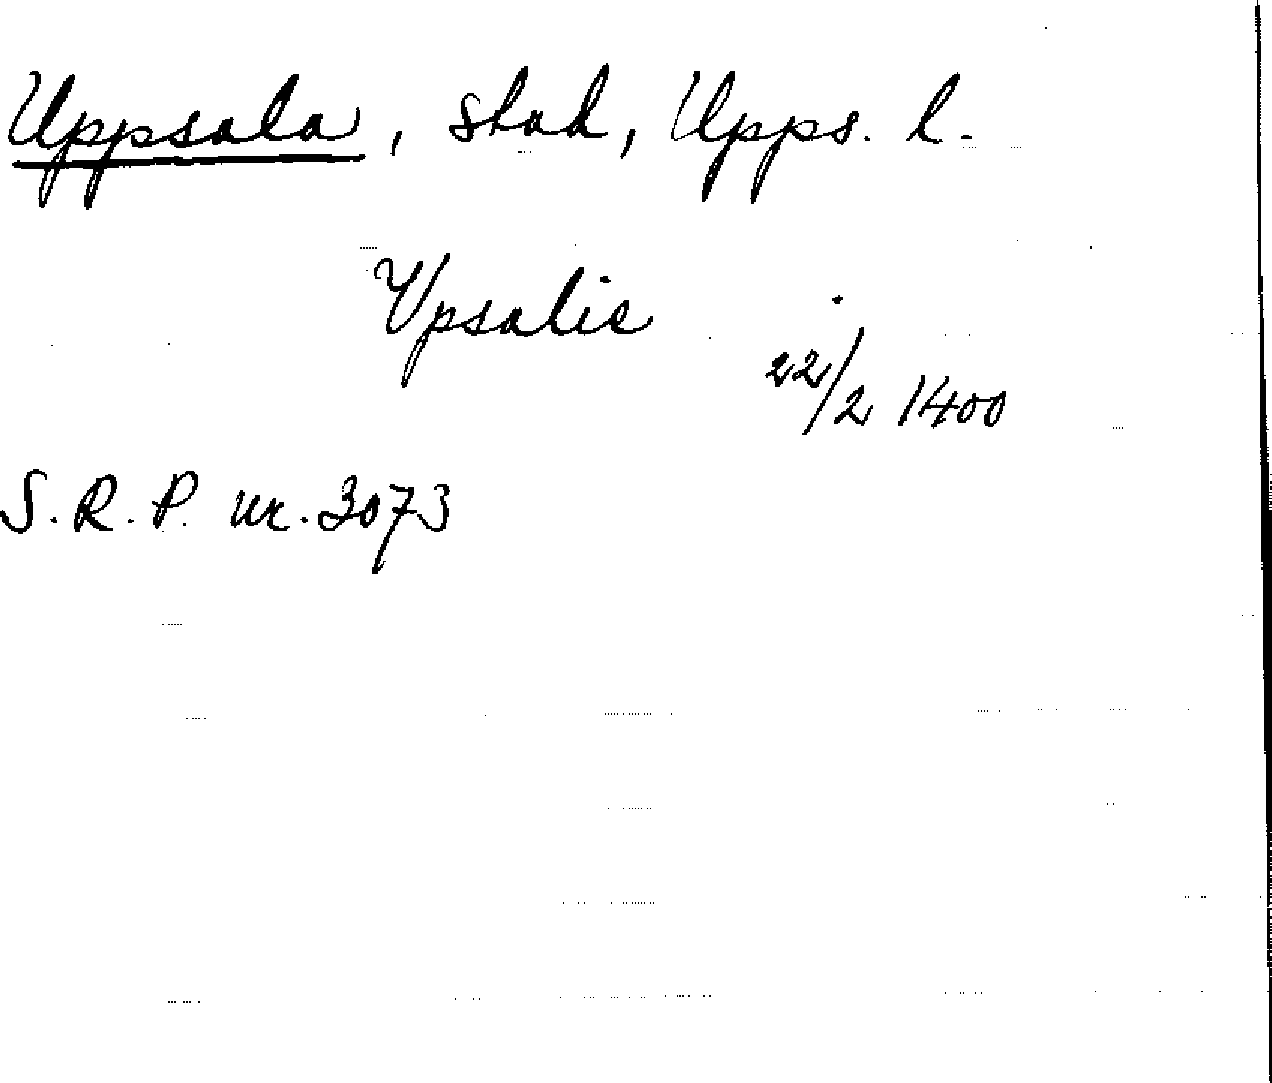 Uppsala, stad, Upps. l.
Vpsalie
22/2 1400
S.R.P. nr. 3073